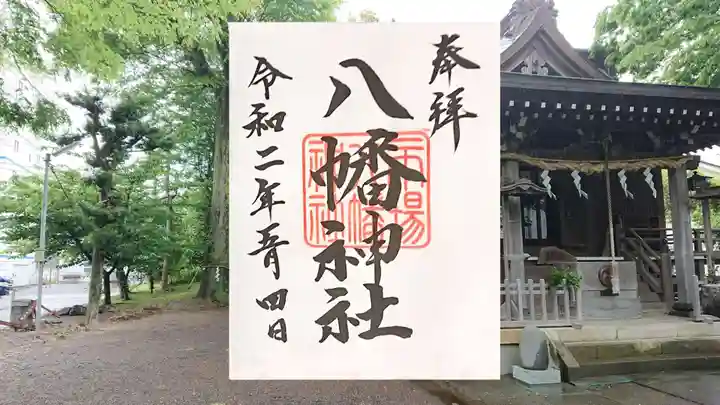 奉拝
八幡神社
市場
八幡
神社
令和二年五月四日